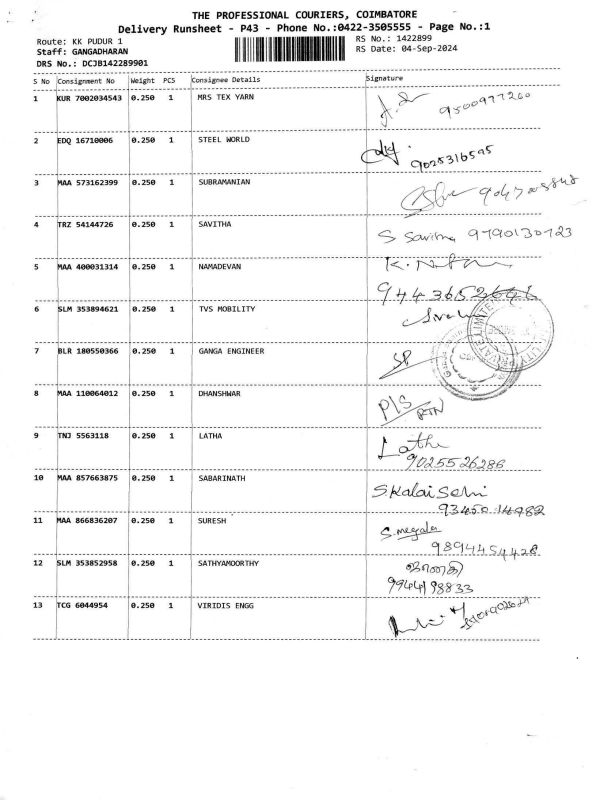 THE PROFESSIONAL COURIERS, COIMBATORE
Delivery Runsheet - P43 - Phone No.:0422-3505555 - Page No.:1
Route: KK PUDUR 1 RS No.: 1422899
Staff: GANGADHARAN RS Date: 04-Sep-2024
DRS No.: DCJB142289901
S No Consignment No Weight PCS Consignee Details Signature
1 KUR 7002034543 0.250 1 MRS TEX YARN 9500977260
2 EDQ 16710006 0.250 1 STEEL WORLD 9025316595
3 MAA 573162399 0.250 1 SUBRAMANIAN
4 TRZ 54144726 0.250 1 SAVITHA S Savitha 9790130723
5 MAA 400031314 0.250 1 NAMADEVAN
6 SLM 353894621 0.250 1 TVS MOBILITY
7 BLR 180550366 0.250 1 GANGA ENGINEER SP
8 MAA 110064012 0.250 1 DHANSHWAR P/S RTN
9 TNJ 5563118 0.250 1 LATHA Latha
9025526286
10 MAA 857663875 0.250 1 SABARINATH S Kalai Selvi
11 MAA 866836207 0.250 1 SURESH S. megala
9894454428
12 SLM 353852958 0.250 1 SATHYAMOORTHY
9944198833
13 TCG 6044954 0.250 1 VIRIDIS ENGG